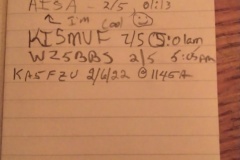 AISA - 2/5 01:13
I'm cool
KI5MVF 2/5 5:01am
WZ5BBS 2/5 5:05pm
KA5FZU 2/6/22 @ 1145A